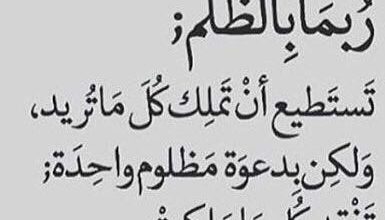 رُبمَا بِالظُلم;
تَستَطيع أنْ تَملِك كُلَ مَا تُريد،
وَلكِن بِدعوَة مَظلوم واحِدَة;